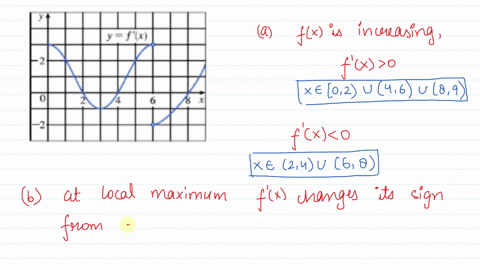 y
y = f'(x)
2
0
2
4
6
8
x
-2
(a) f(x) is increasing,
f'(x)>0
x∈[0,2) ∪ (4,6) ∪ (8,9)
f'(x)<0
x∈ (2,4) ∪ (6,8)
(b) at local maximum f'(x) changes its sign
from